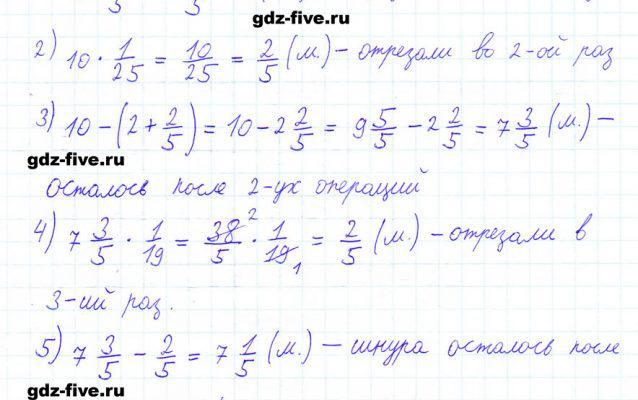 5 5
gdz-five.ru
2) 10 · 1/25 = 10/25 = 2/5 (м.) – отрезали во 2-ой раз
3) 10 – (2 + 2/5) = 10 – 2 2/5 = 9 5/5 – 2 2/5 = 7 3/5 (м.) –
gdz-five.ru
осталось после 2-ух операций
4) 7 3/5 · 1/19 = 38/5 2 · 1/19 1 = 2/5 (м.) – отрезали в
3-ий раз.
5) 7 3/5 – 2/5 = 7 1/5 (м.) – шнура осталось после
gdz-five.ru